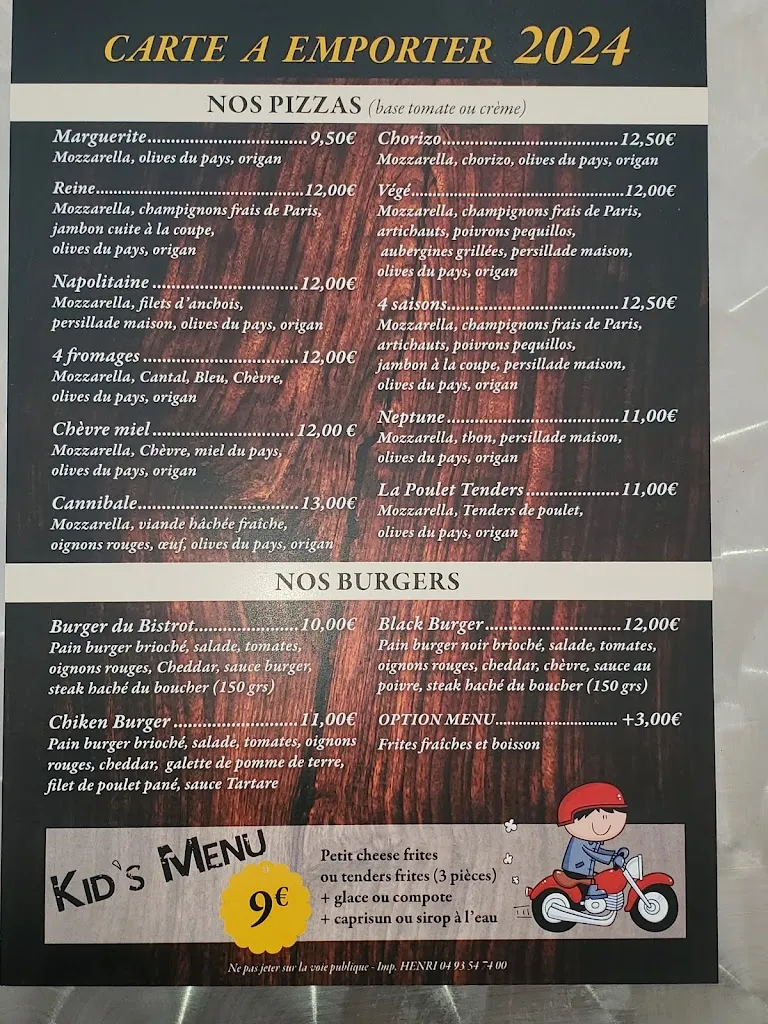 CARTE A EMPORTER 2024
NOS PIZZAS (base tomate ou crème)
Marguerite..............................9,50€
Mozzarella, olives du pays, origan
Reine.......................................12,00€
Mozzarella, champignons frais de Paris,
jambon cuite à la coupe,
olives du pays, origan
Napolitaine ............................12,00€
Mozzarella, filets d'anchois,
persillade maison, olives du pays, origan
4 fromages ..............................12,00€
Mozzarella, Cantal, Bleu, Chèvre,
olives du pays, origan
Chèvre miel ..........................12,00 €
Mozzarella, Chèvre, miel du pays,
olives du pays, origan
Cannibale...............................13,00€
Mozzarella, viande hâchée fraîche,
oignons rouges, œuf, olives du pays, origan
Chorizo..................................12,50€
Mozzarella, chorizo, olives du pays, origan
Végé........................................12,00€
Mozzarella, champignons frais de Paris,
artichauts, poivrons pequillos,
aubergines grillées, persillade maison,
olives du pays, origan
4 saisons.................................12,50€
Mozzarella, champignons frais de Paris,
artichauts, poivrons pequillos,
jambon à la coupe, persillade maison,
olives du pays, origan
Neptune..................................11,00€
Mozzarella, thon, persillade maison,
olives du pays, origan
La Poulet Tenders..................11,00€
Mozzarella, Tenders de poulet,
olives du pays, origan
NOS BURGERS
Burger du Bistrot....................10,00€
Pain burger brioché, salade, tomates,
oignons rouges, Cheddar, sauce burger,
steak haché du boucher (150 grs)
Chiken Burger .......................11,00€
Pain burger brioché, salade, tomates, oignons
rouges, cheddar, galette de pomme de terre,
filet de poulet pané, sauce Tartare
Black Burger..........................12,00€
Pain burger noir brioché, salade, tomates,
oignons rouges, cheddar, chèvre, sauce au
poivre, steak haché du boucher (150 grs)
OPTION MENU............................ +3,00€
Frites fraîches et boisson
KID'S MENU
9€
Petit cheese frites
ou tenders frites (3 pièces)
+ glace ou compote
+ caprisun ou sirop à l'eau
Ne pas jeter sur la voie publique - Imp. HENRI 04 93 54 74 00